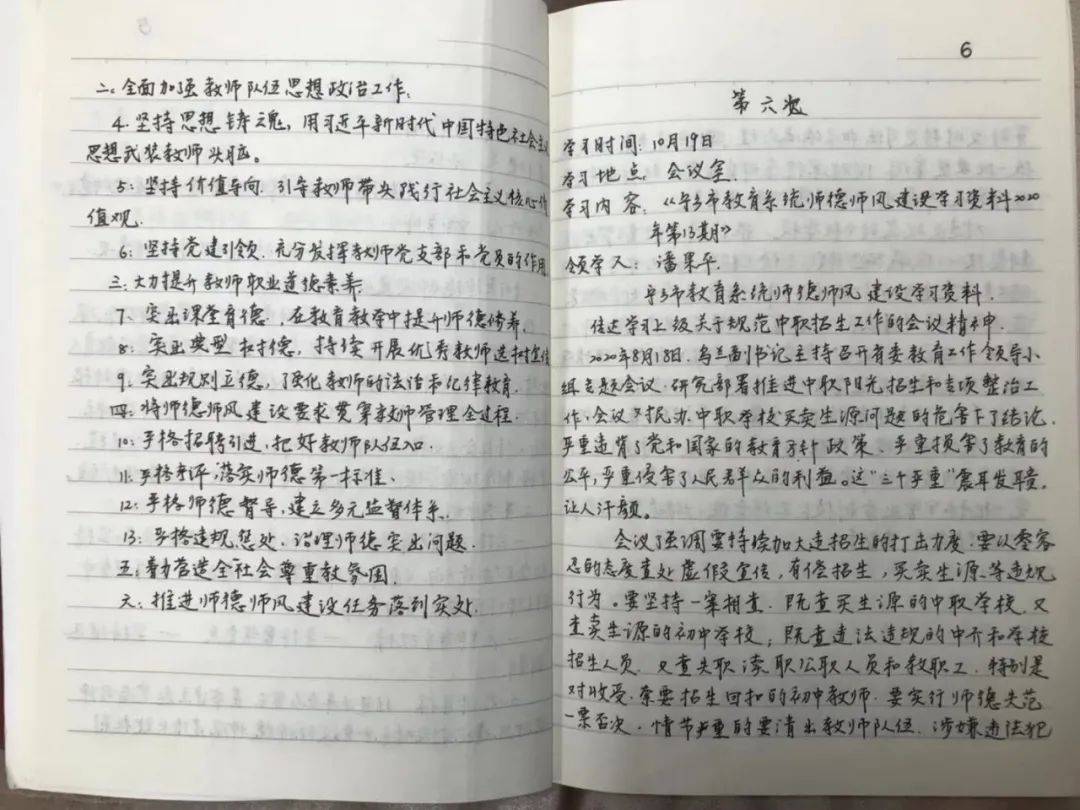 二、全面加强教师队伍思想政治工作.
4.坚持思想铸魂,用习近平新时代中国特色社会主义
思想武装教师头脑。
5:坚持价值导向.引导教师带头践行社会主义核心价
值观.
6:坚持党建引领.充分发挥教师党支部和党员的作用.
三:大力提升教师职业道德素养.
7.突出课堂育德.在教育教学中提升师德修养.
8:突出典型树德,持续开展优秀教师选树宣传
9.突出规则立德,强化教师的法治和纪律教育.
四:将师德师风建设要求贯穿教师管理全过程.
10:严格招聘引进,把好教师队伍入口.
11.严格考评.落实师德第一标准.
12:严格师德督导,建立多元监督体系.
13:严格违规惩处.治理师德突出问题.
五:着力营造全社会尊重教氛围.
六:推进师德师风建设任务落到实处.
6
第六
学习时间:10月19日
学习地点:会议室.
学习内容:《宁乡市教育系统师德师风建设学习资料2020
年第13期》
领学人:潘果平.
宁乡市教育系统师德师风建设学习资料.
传达学习上级关于规范中职招生工作的会议精神.
2020年8月18日.乌兰副书记主持召开省委教育工作领导小
组专题会议.研究部署推进中职阳光招生和专项整治工
作.会议对民办中职学校买卖生源问题的危害下了结论.
严重违背了党和国家的教育方针政策、严重损害了教育的
公平,严重侵害了人民群众的利益。这"三个严重"震耳发聩,
让人汗颜。
会议强调要持续加大违招生的打击力度.要以零容
忍的态度查处虚假宣传,有偿招生,买卖生源.等违规
行为。要坚持一案相查.既查买生源的中职学校.又
查卖生源的初中学校;既查违法违规的中介和学校
招生人员.又查失职渎职公职人员和教职工.特别是
对收受.索要招生回扣的初中教师.要实行师德失范
一票否决.情节严重的要清出教师队伍.涉嫌违法犯